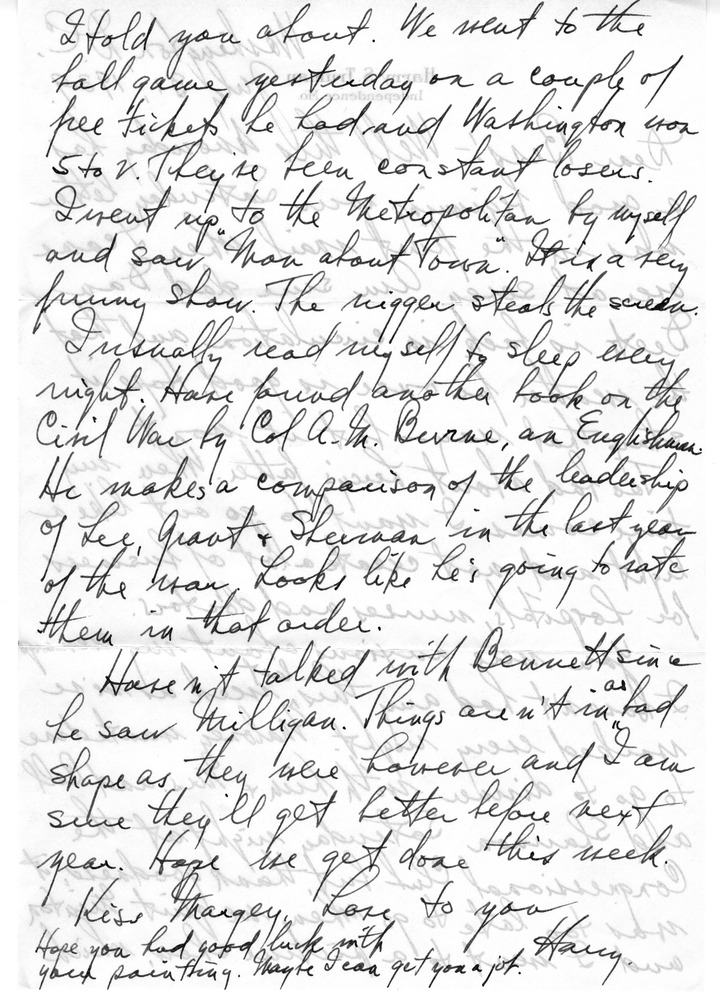 I told you about. We went to the
ball game yesterday on a couple of
free tickets he had and Washington won
5 to 2. They've been constant losers.
I went up to the Metropolitan by myself
and saw "Man about Town". It is a very
funny show. The nigger steals the screen.
I usually read myself to sleep every
night. Have found another book on the
Civil War by Col A.M. Burne, an Englishman.
He makes a comparison of the leadership
of Lee, Grant & Sherman in the last year
of the war. Looks like he's going to rate
them in that order.
Haven't talked with Bennett since
he saw Milligan. Things aren't in as bad
shape as they were however and I am
sure they'll get better before next
year. Hope we get done this week.
Kiss Margey, Love to you
Harry.
Hope you had good luck with
your painting. Maybe I can get you a job.